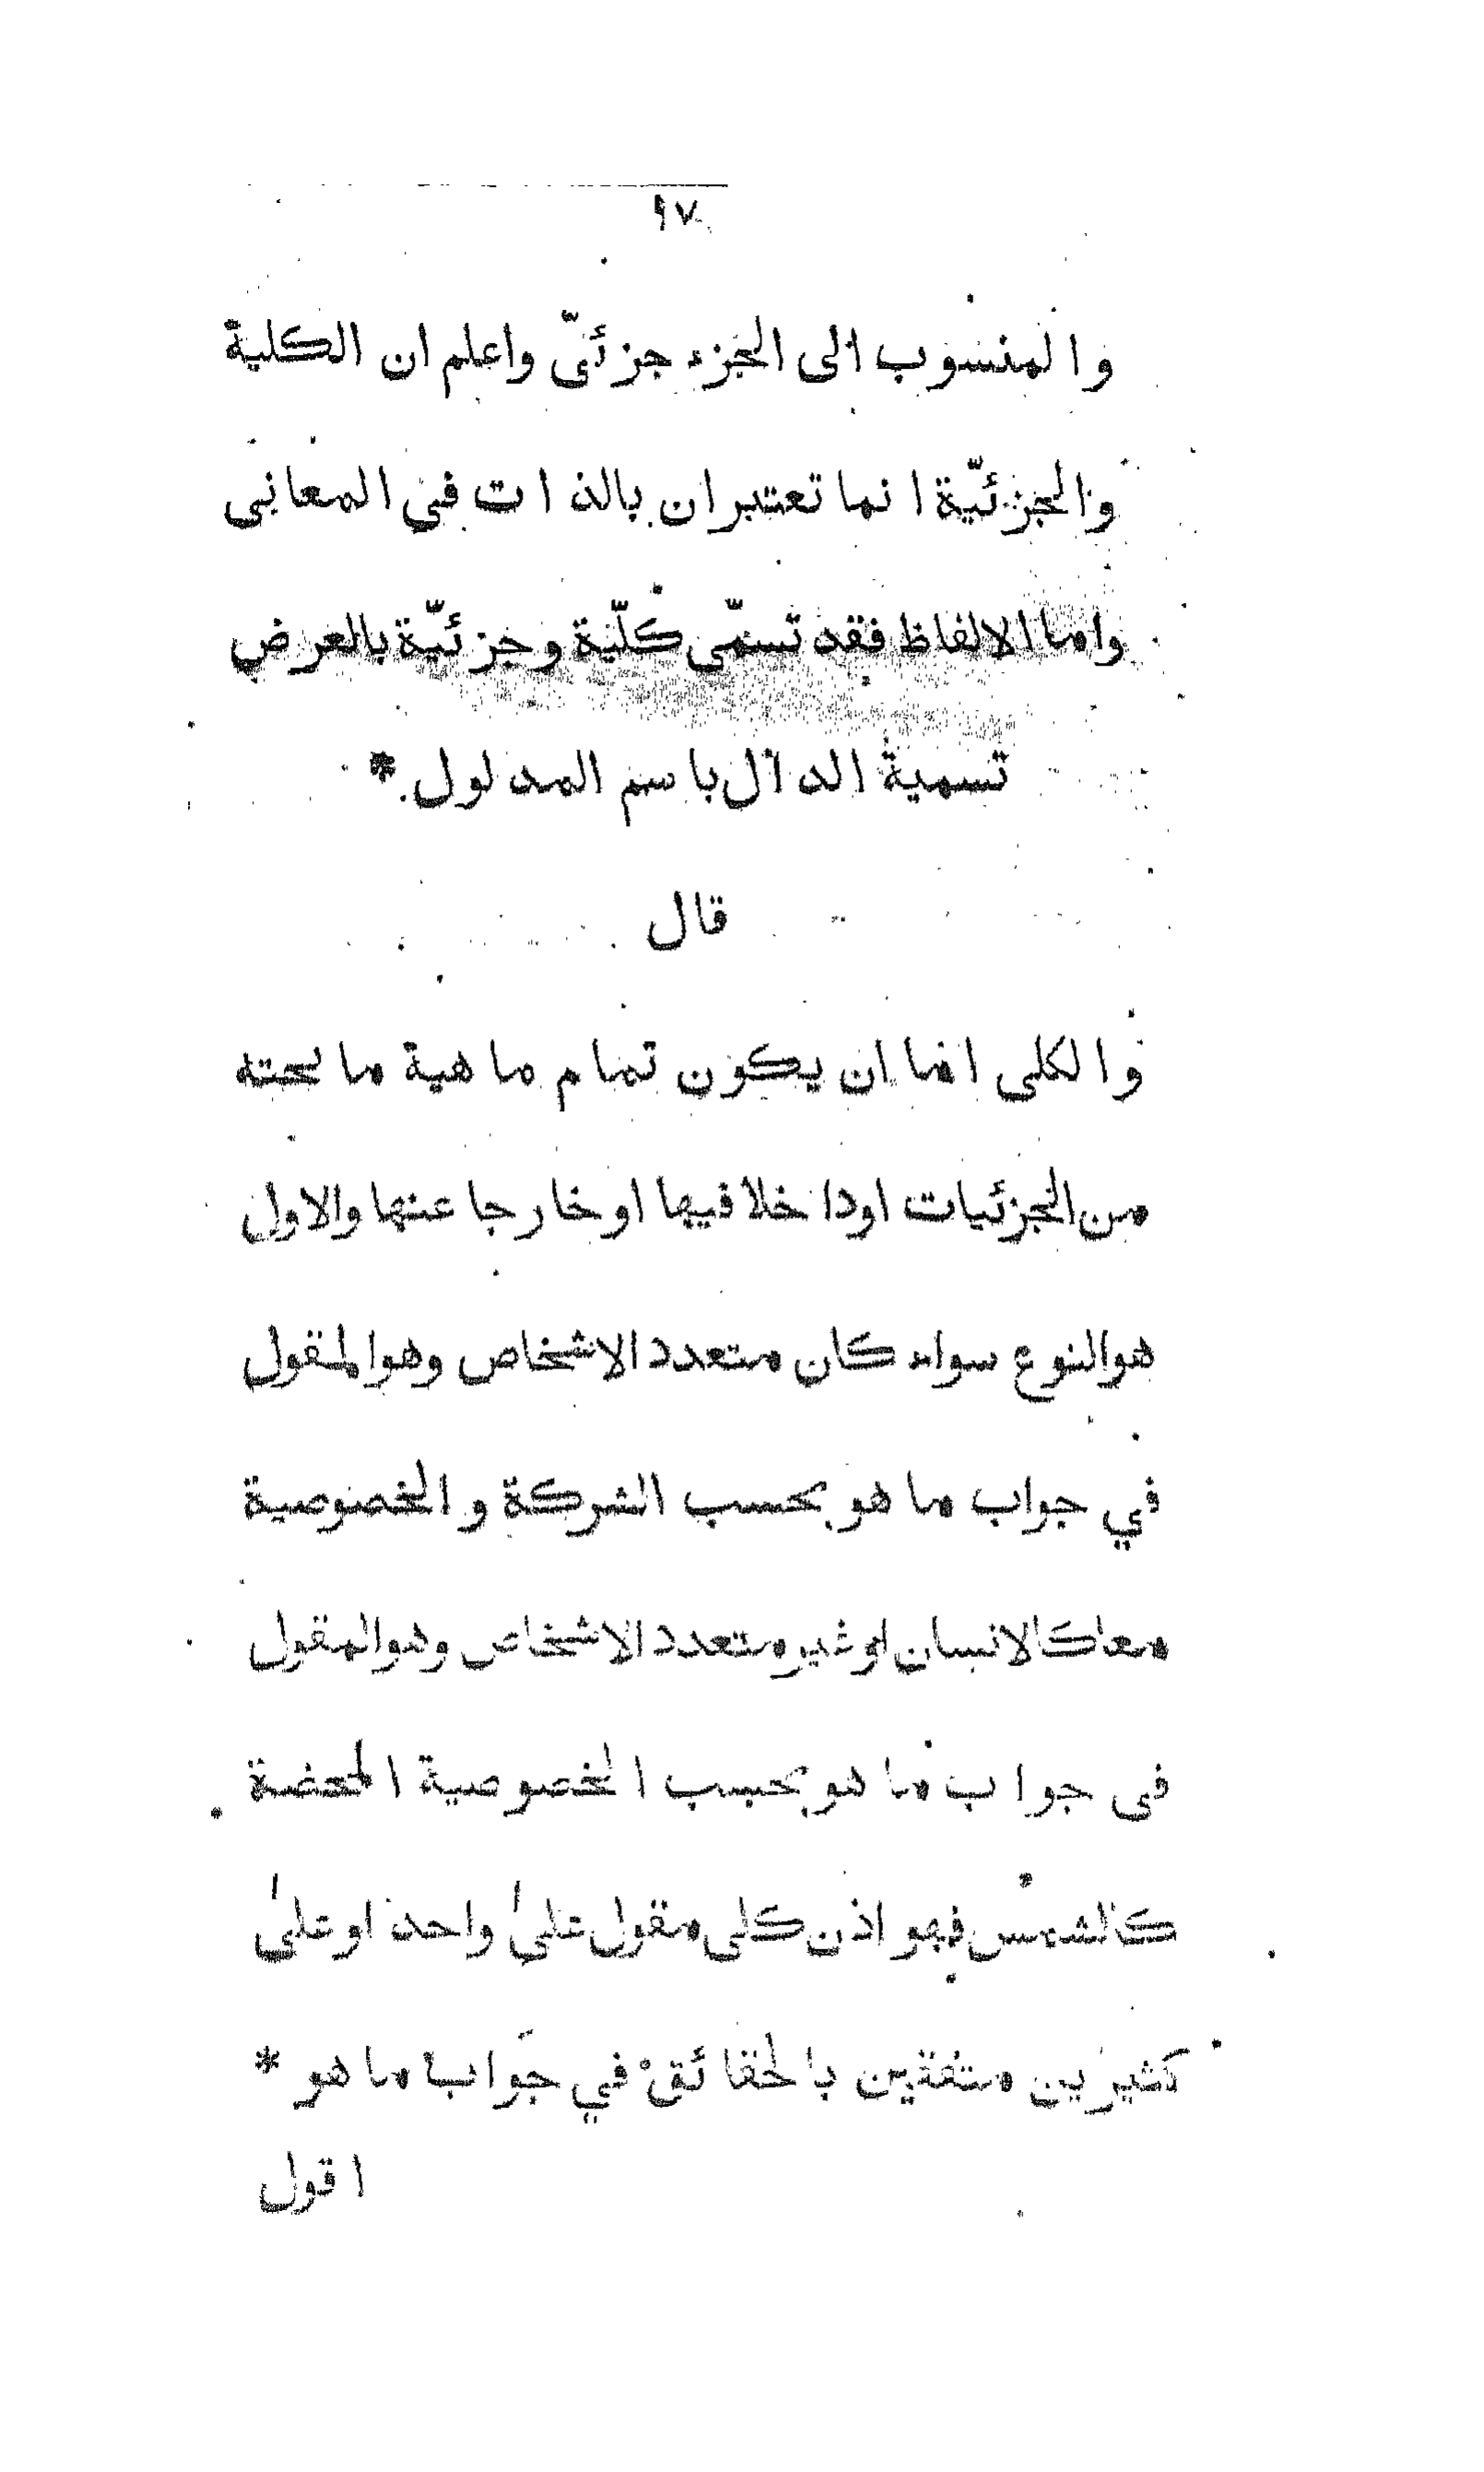 ٩٧
والمنسوب الى الجزء جزئيّ واعلم ان الكلية
والجزئيّة انما تعتبران بالذات في المعاني
واما الالفاظ فقد تسمّى كلّية وجزئيّة بالعرض
تسمية الدال باسم المدلول *
قال
والكلى اما ان يكون تمام ماهية ما تحته
من الجزئيات اوداخلا فيها اوخارجا عنها والاول
هوالنوع سواء كان متعدد الاشخاص وهوالمقول
في جواب ما هو بحسب الشركة والخصوصية
معا كالانسان اوغير متعدد الاشخاص وهوالمقول
فى جواب ما هو بحسب الخصوصية المحضة
كالشمس فهو اذن كلى مقول على واحد اوعلى
كثيرين متفقين بالحقائق في جواب ما هو *
اقول